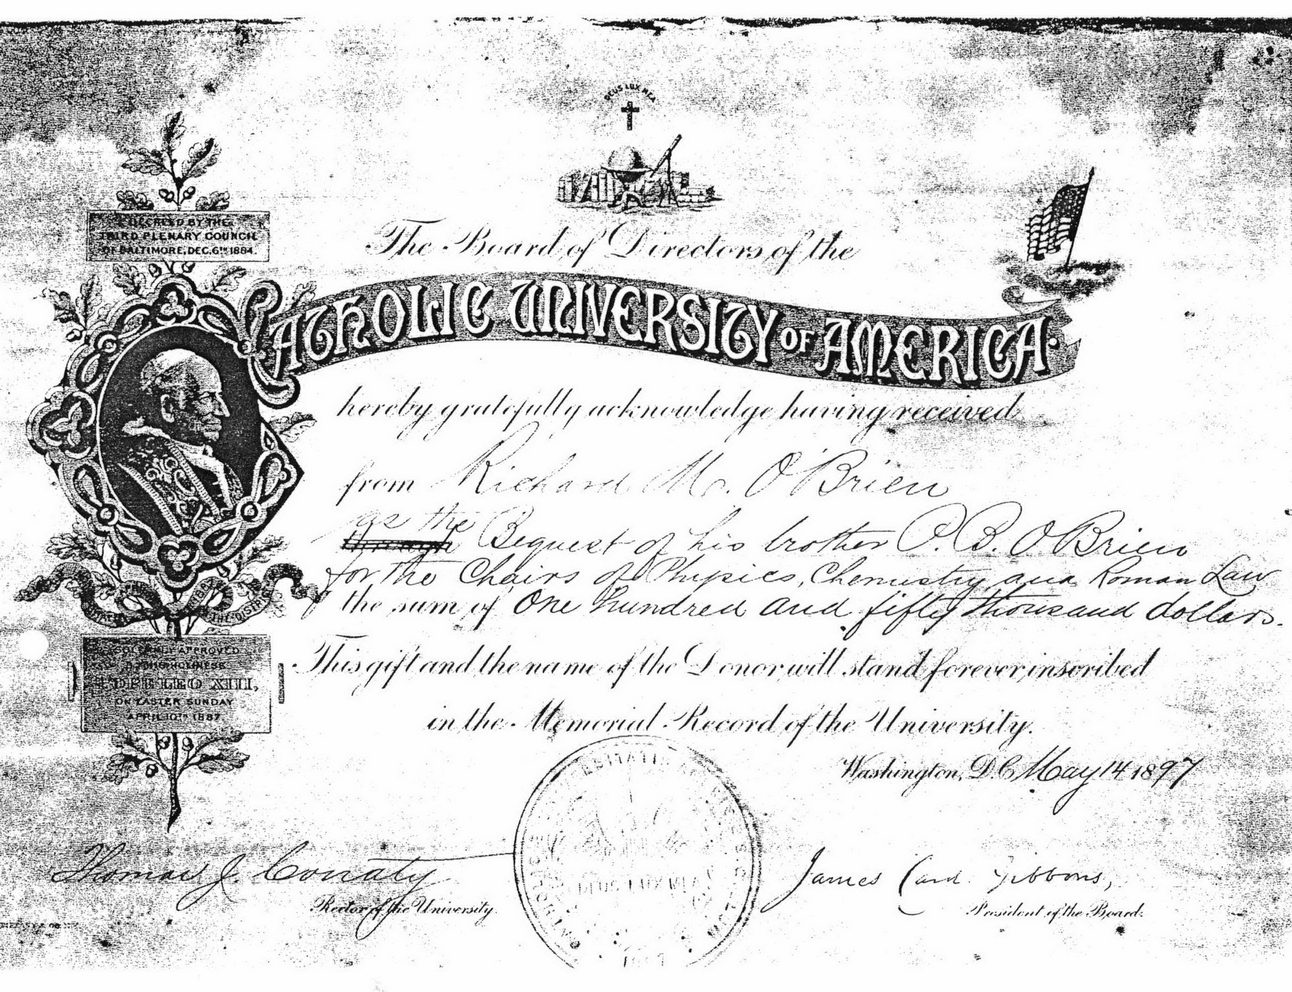 DEUS LUX MEA
DECREED BY THE
THIRD PLENARY COUNCIL
OF BALTIMORE, DEC. 6TH 1884.
The Board of Directors of the
CATHOLIC UNIVERSITY OF AMERICA.
hereby gratefully acknowledge having received
from Richard M. O'Brien
as the
through Bequest of his brother P. B. O'Brien
for the Chairs of Physics, Chemistry and Roman Law
the sum of One hundred and fifty thousand dollars.
This gift and the name of the Donor will stand forever inscribed
in the Memorial Record of the University.
Washington, D.C. May 14 1897
THE DISTRICT
APPROVED
BY HIS HOLINESS
POPE LEO XIII,
ON EASTER SUNDAY
APRIL 10TH 1887.
DEUS LUX MEA
Thomas J. Conaty
Rector of the University.
James Card. Gibbons,
President of the Board.